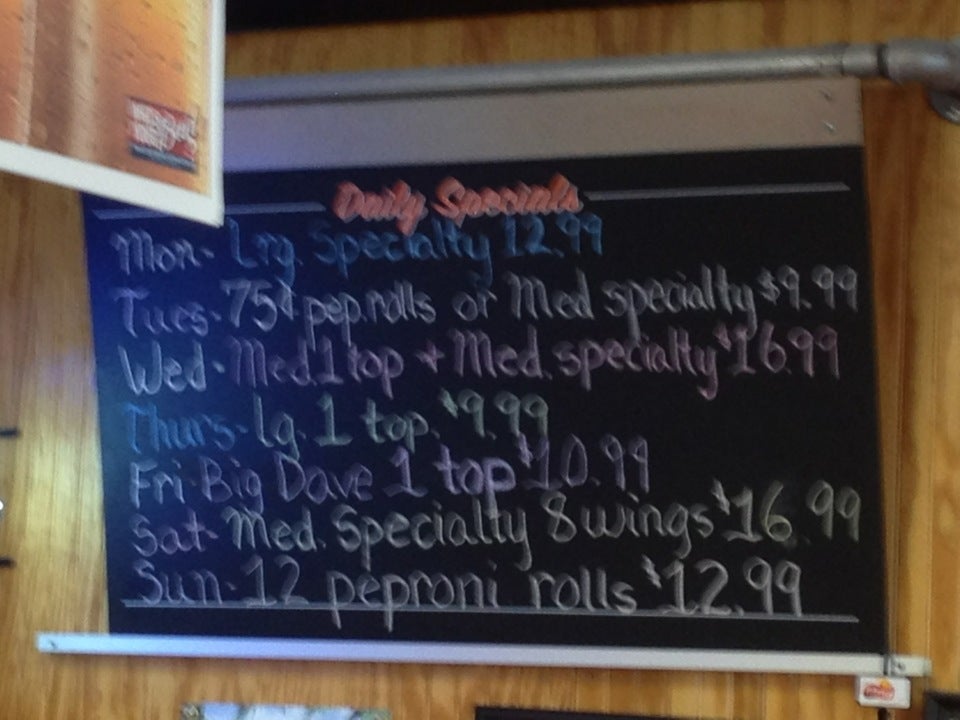 Daily Specials
Mon- Lrg. Specialty 12.99
Tues- 75¢ pep.rolls or Med specialty $9.99
Wed- Med.1 top + Med. specialty $16.99
Thurs- lg. 1 top. $9.99
Fri-Big Dave 1 top $10.99
Sat- Med. Specialty 8 wings $16.99
Sun- 12 peproni rolls $12.99